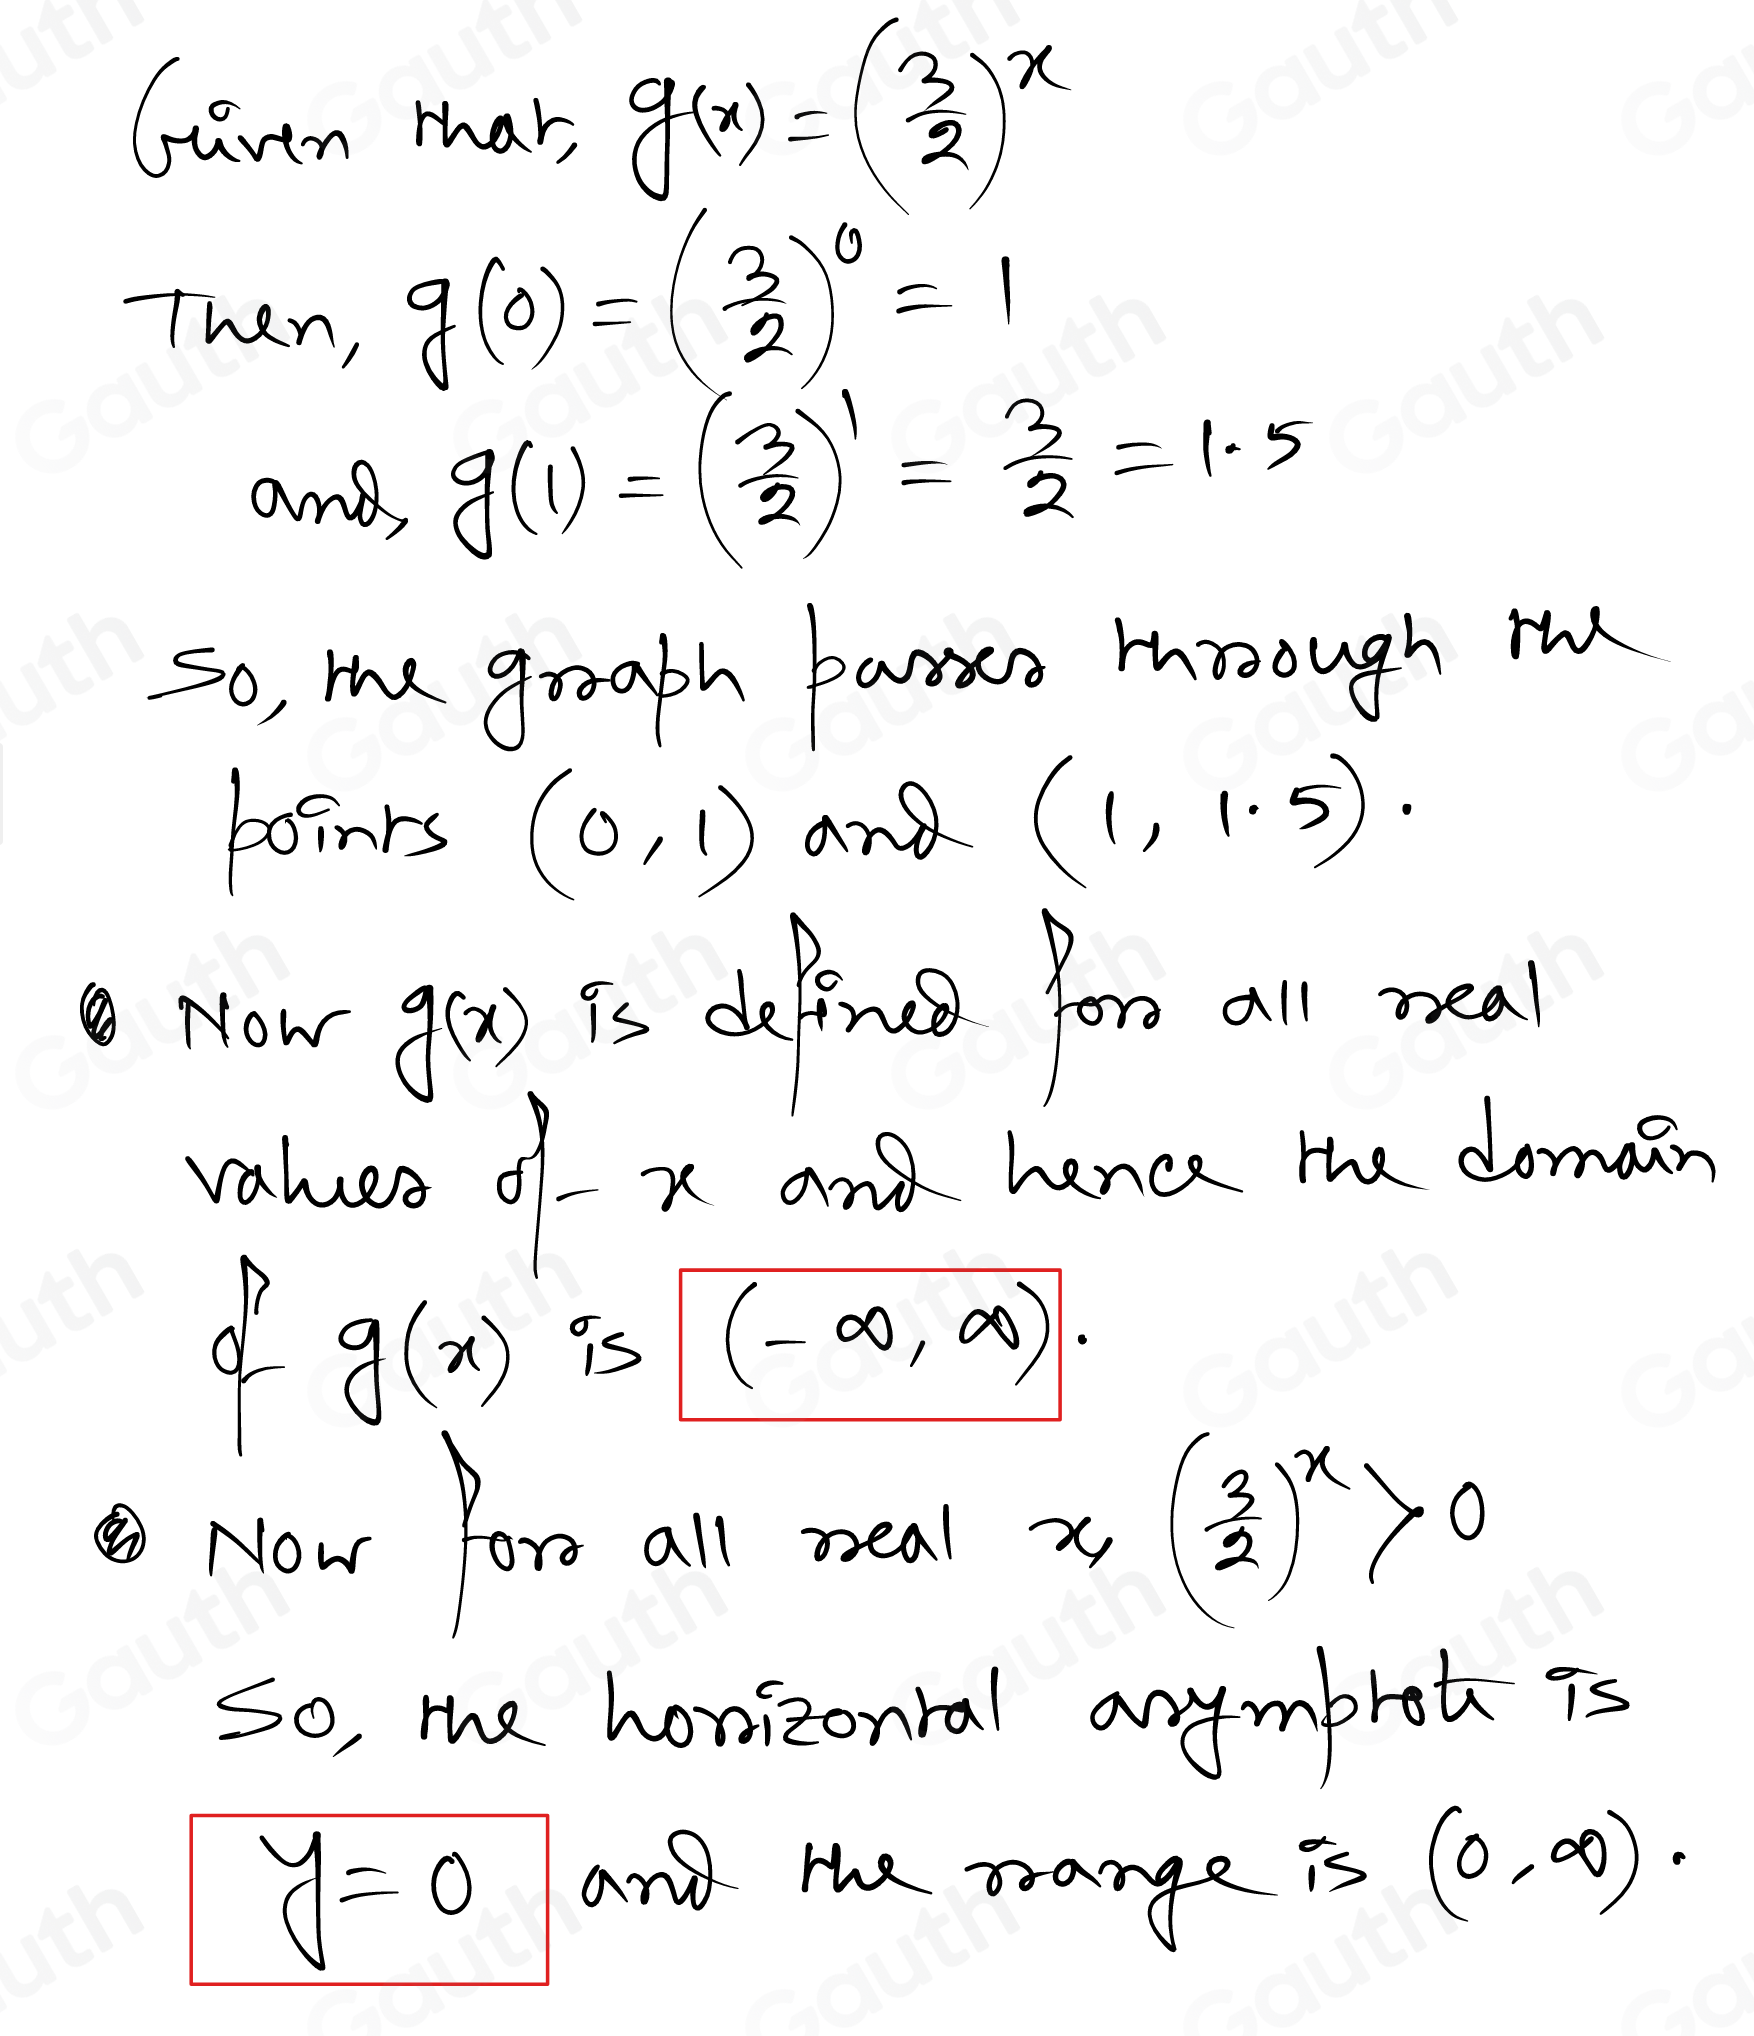 Given that, g(x) = (3/2)^x
Then, g(0) = (3/2)^0 = 1
and, g(1) = (3/2)^1 = 3/2 = 1.5
So, the graph passes through the
points (0, 1) and (1, 1.5).
Now g(x) is defined for all real
values of x and hence the domain
of g(x) is (-∞, ∞).
Now for all real x, (3/2)^x > 0
So, the horizontal asymptote is
y = 0 and the range is (0, ∞).
Gauth